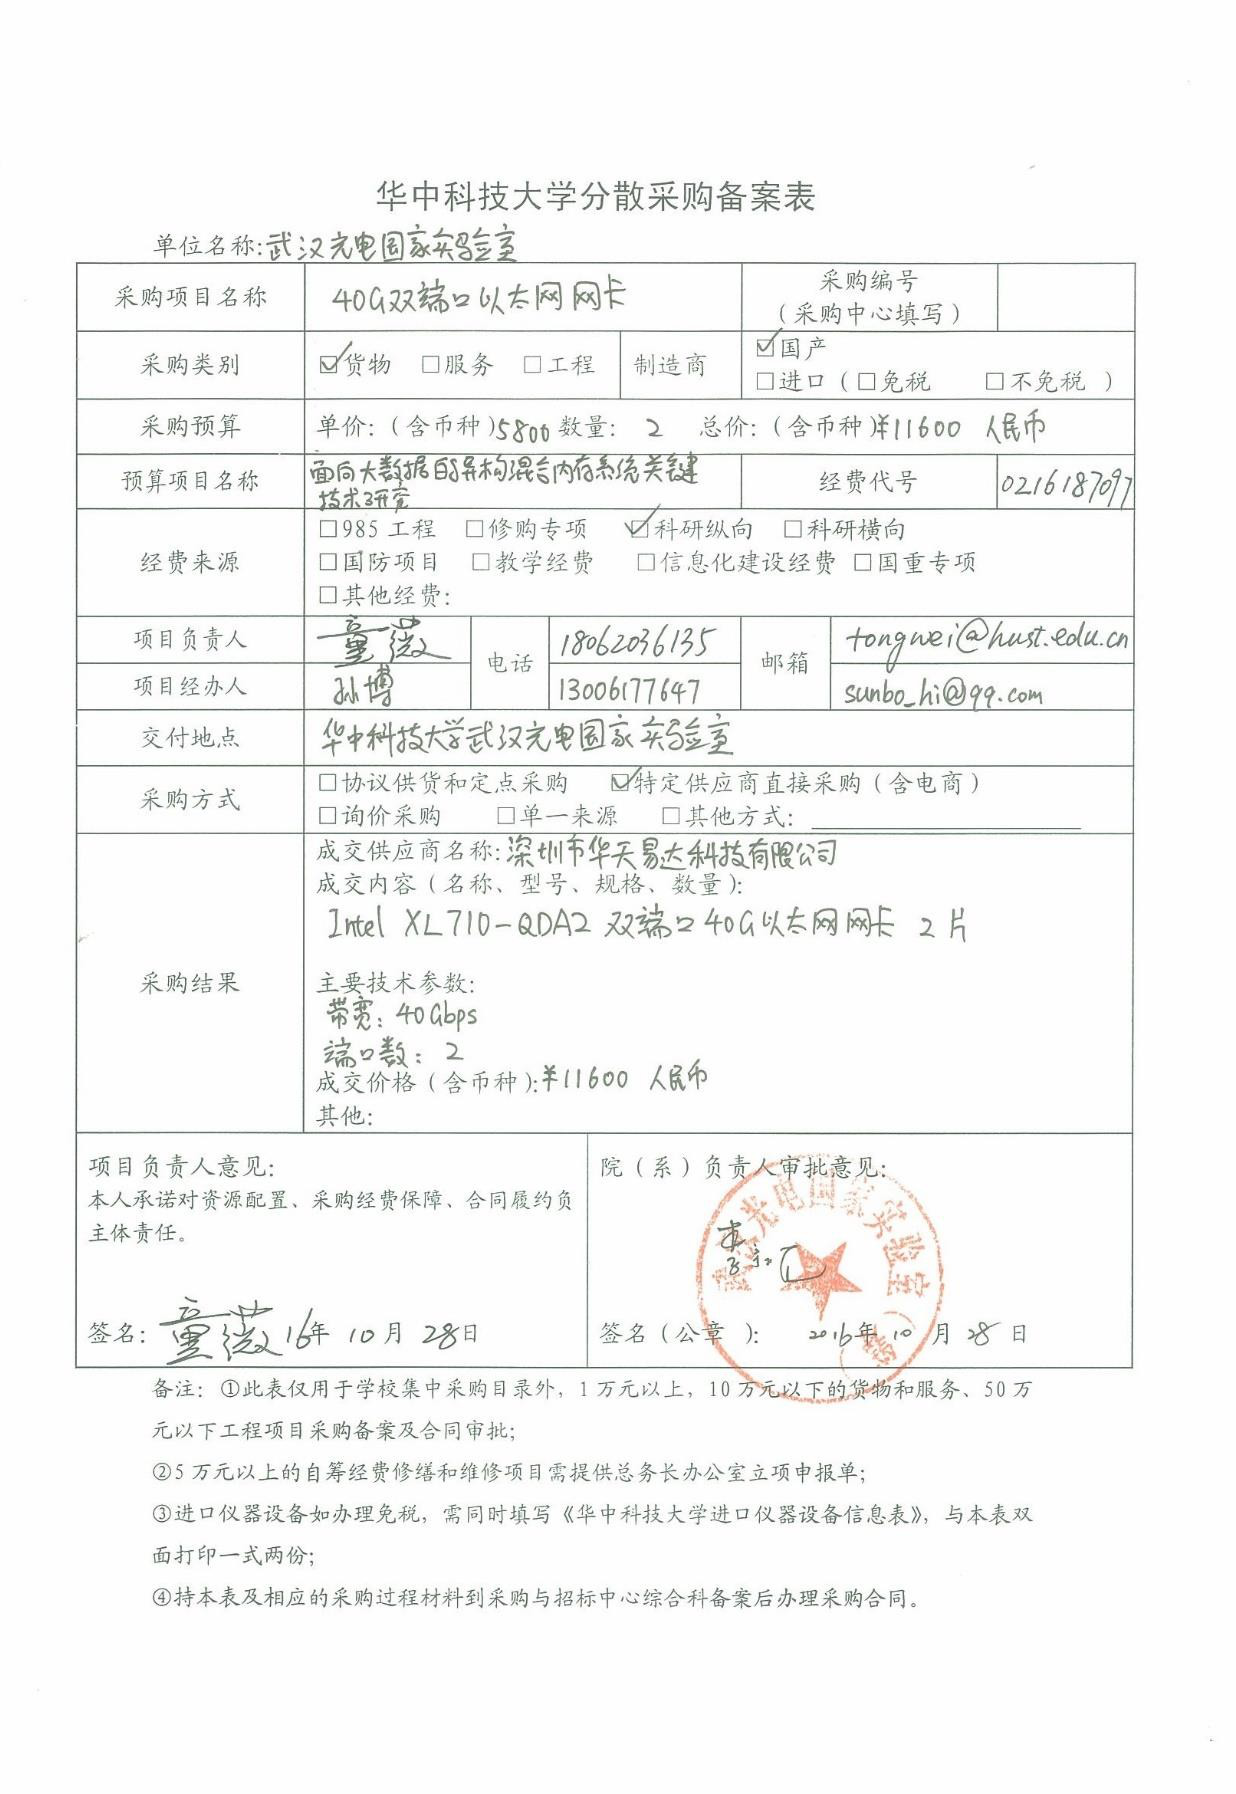 华中科技大学分散采购备案表
单位名称:武汉光电国家实验室
采购项目名称 40G双端口以太网网卡 采购编号
（采购中心填写）
采购类别 ☑货物 □服务 □工程 制造商 ☑国产
□进口（□免税 □不免税 ）
采购预算 单价:（含币种）5800 数量: 2 总价:（含币种）¥11600 人民币
预算项目名称 面向大数据的异构混合内存系统关键
技术研究 经费代号 0216187097
经费来源 □985工程 □修购专项 ☑科研纵向 □科研横向
□国防项目 □教学经费 □信息化建设经费 □国重专项
□其他经费:
项目负责人 童薇 电话 18062036135 邮箱 tongwei@hust.edu.cn
项目经办人 孙博 13006177647 sunbo_hi@qq.com
交付地点 华中科技大学武汉光电国家实验室
采购方式 □协议供货和定点采购 ☑特定供应商直接采购（含电商）
□询价采购 □单一来源 □其他方式:
采购结果 成交供应商名称:深圳市华天易达科技有限公司
成交内容（名称、型号、规格、数量）:
Intel XL710-QDA2 双端口40G以太网网卡 2片
主要技术参数:
带宽: 40Gbps
端口数: 2
成交价格（含币种）:¥11600 人民币
其他:
项目负责人意见:
本人承诺对资源配置、采购经费保障、合同履约负
主体责任。
签名: 童薇 16年 10月 28日
院（系）负责人审批意见:
光电国家实验室
签名（公章 ）: 2016年 10月 28日
备注: ①此表仅用于学校集中采购目录外，1万元以上，10万元以下的货物和服务、50万
元以下工程项目采购备案及合同审批;
②5万元以上的自筹经费修缮和维修项目需提供总务长办公室立项申报单;
③进口仪器设备如办理免税，需同时填写《华中科技大学进口仪器设备信息表》，与本表双
面打印一式两份;
④持本表及相应的采购过程材料到采购与招标中心综合科备案后办理采购合同。